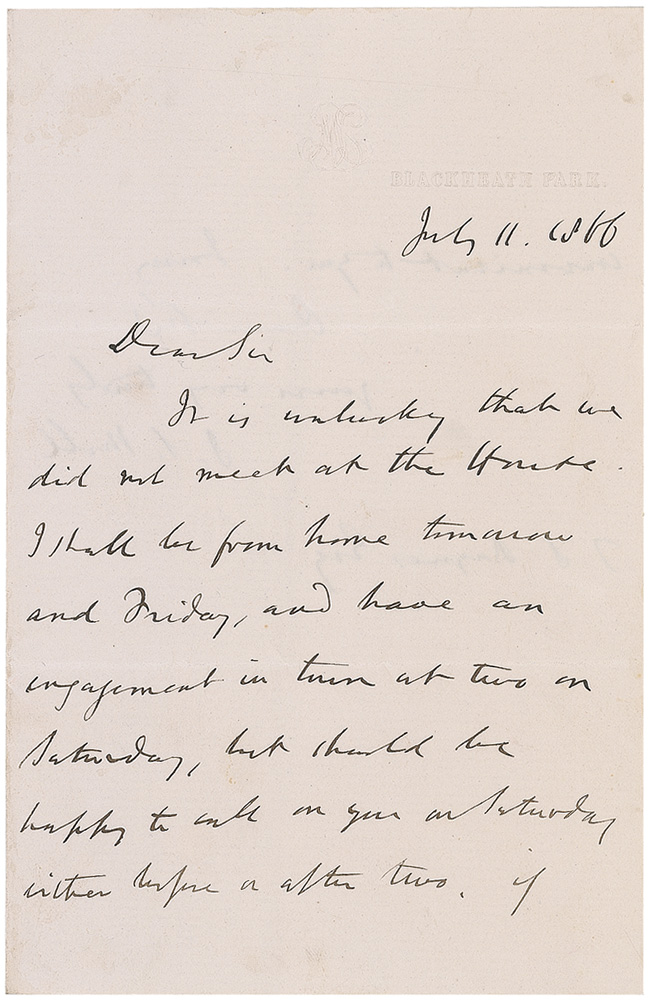 BLACKHEATH PARK.
July 11. 1866
Dear Sir
It is unlucky that we
did not meet at the House.
I shall be from home tomorrow
and Friday, and have an
engagement in town at two on
Saturday, but should be
happy to call on you on Saturday
either before or after two, if